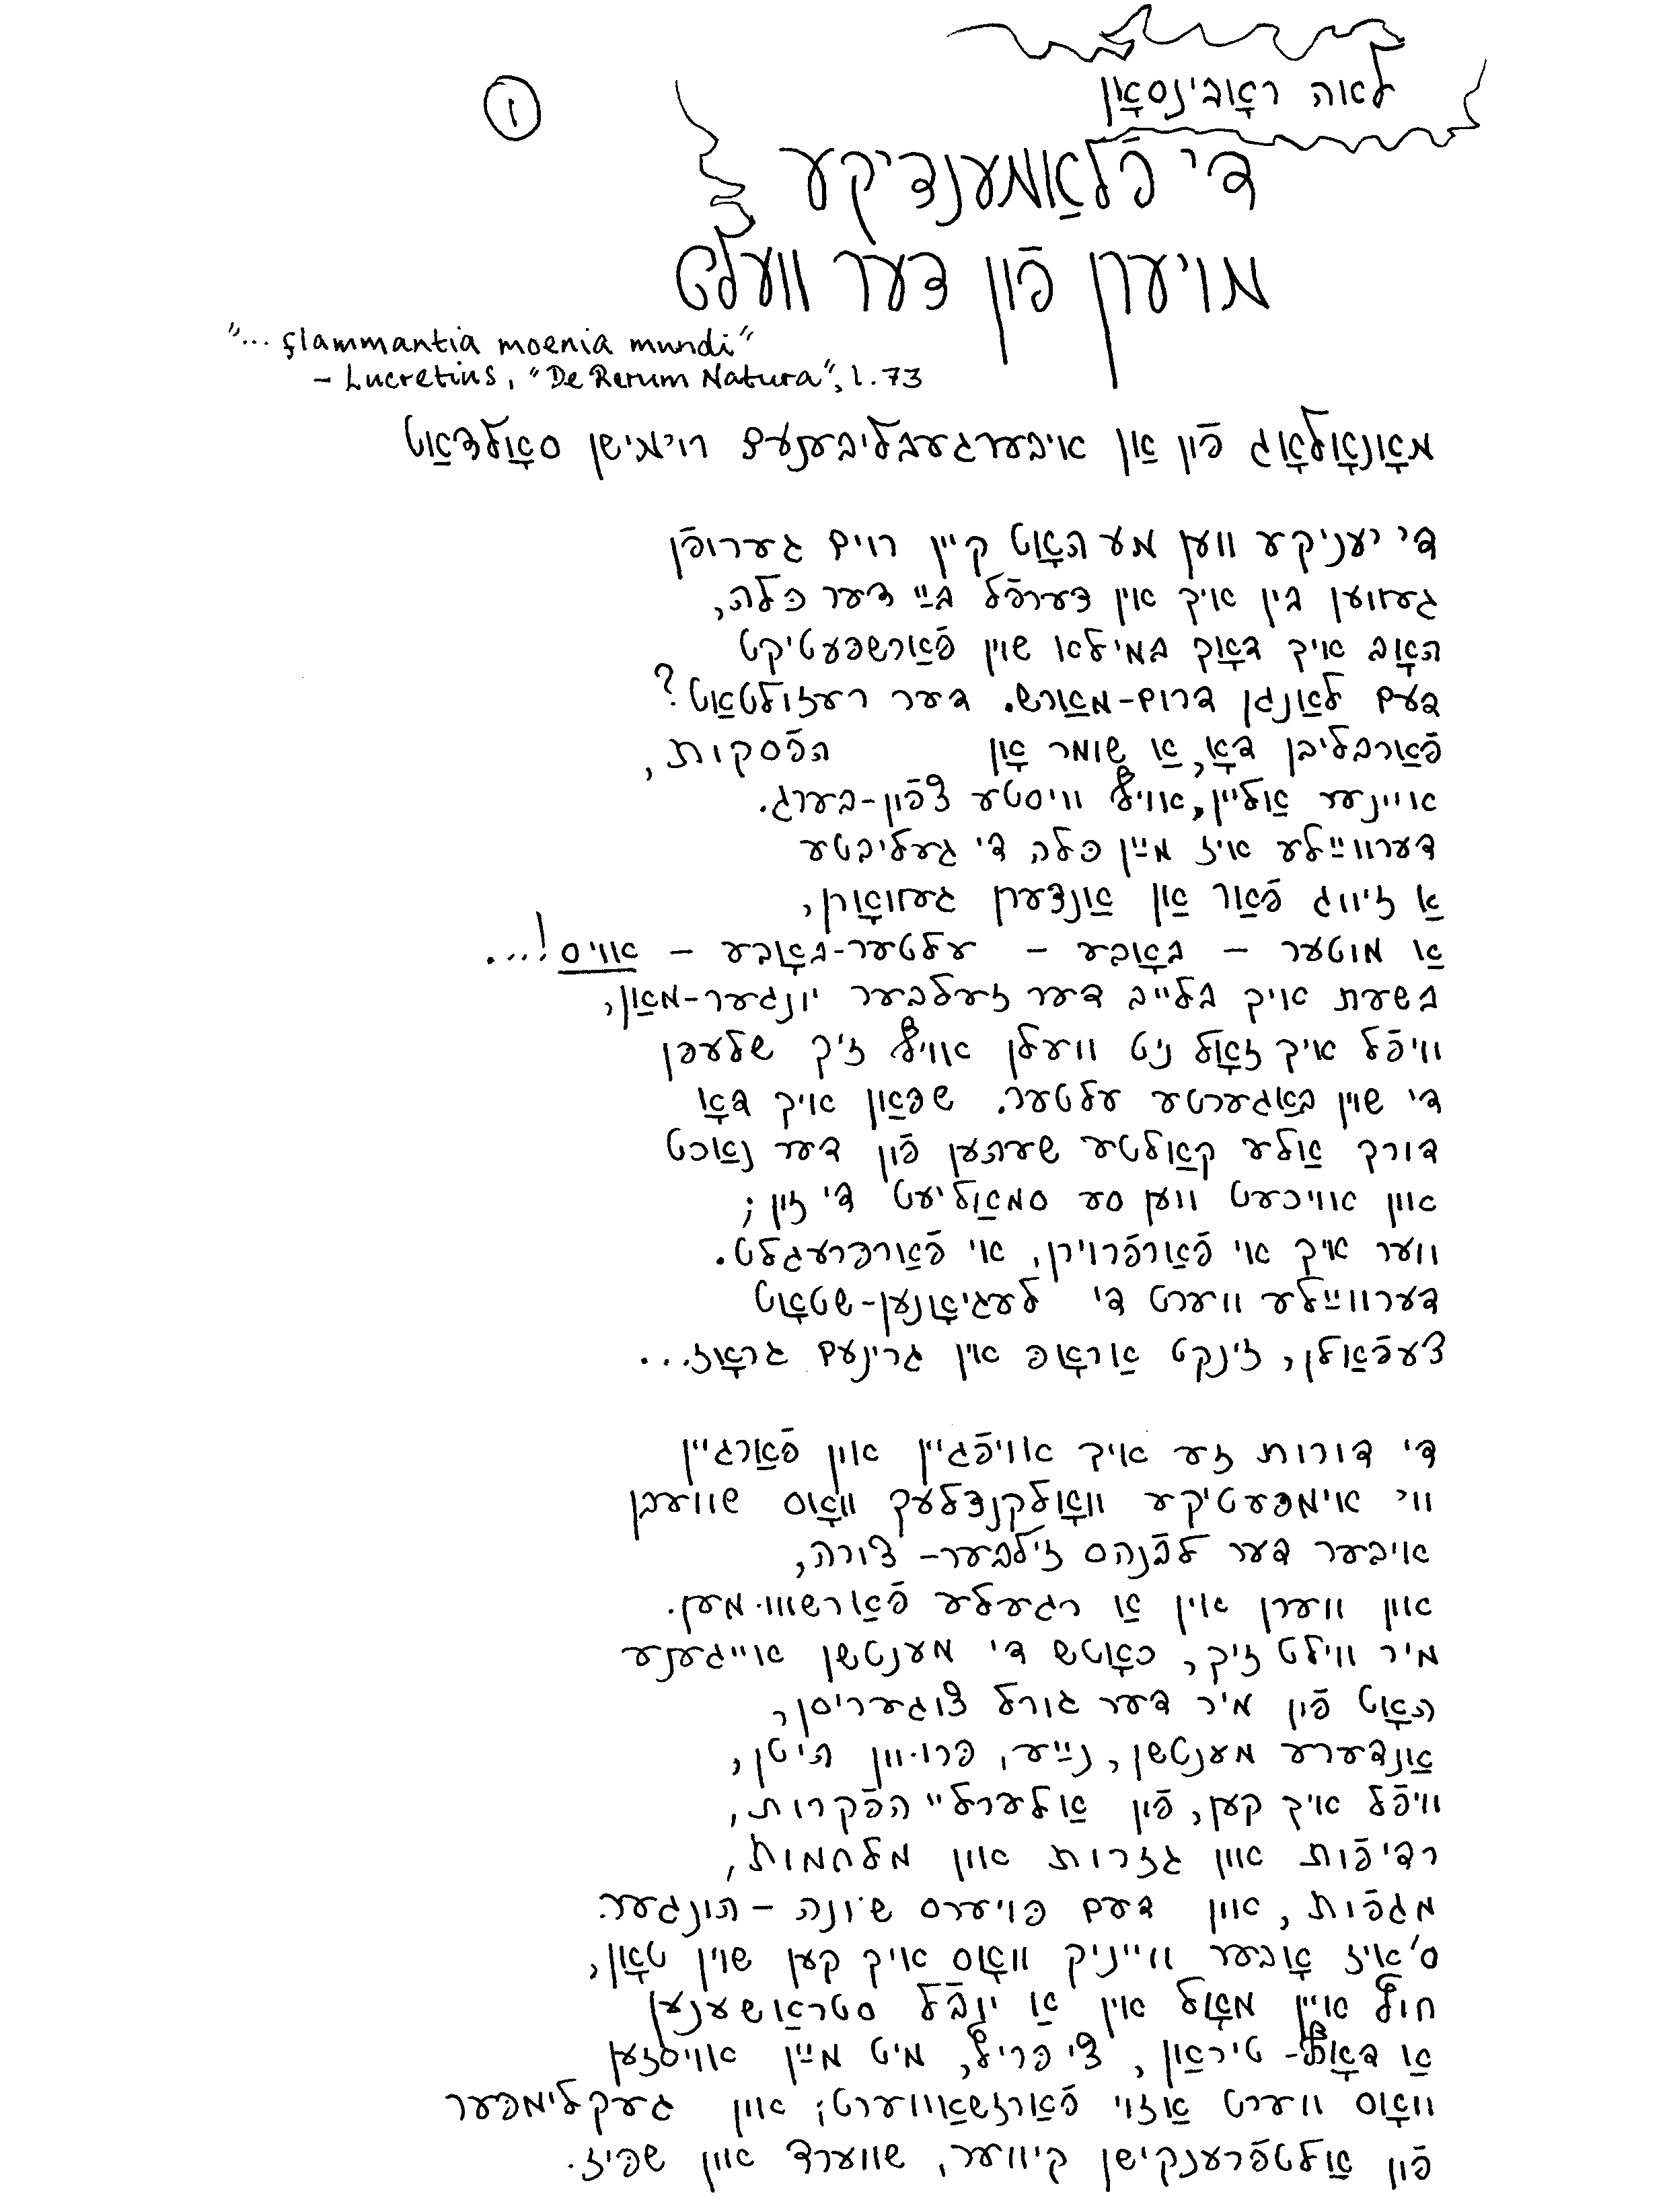 לאה ראָבינסאָן
①
די פֿלאַמענדיקע
מויערן פֿון דער וועלט
"... flammantia moenia mundi"
– Lucretius, "De Rerum Natura", 1.73
מאָנאָלאָג פֿון אַן איבערגעבליבענעם רוימישן סאָלדאַט
די יעניקע ווען מע האָט קיין רוים גערופֿן
געווען בין איך אין דערפֿל בײַ דער כּלה,
האָב איך דאָך במילא שוין פֿאַרשפּעטיקט
דעם לאַנגן דרום-מאַרש. דער רעזולטאַט?
פֿאַרבליבן דאָ, אַ שומר אָן הפֿסקות,
איינער אַליין, אויף וויסטע צפֿון-בערג.
דערווײַלע איז מײַן כּלה די געליבטע
אַ זיווג פֿאַר אַן אַנדערן געוואָרן,
אַ מוטער – באָבע – עלטער-באָבע – אויס!...
בשעת איך בלייב דער זעלבער יונגער-מאַן,
וויפֿל איך זאָל ניט וועלן אויף זיך שלעפּן
די שוין באַגערטע עלטער. שפּאַן איך דאָ
דורך אַלע קאַלטע שעתען פֿון דער נאַכט
און אויכעט ווען סע סמאַליעט די זון;
ווער איך אי פֿאַרפֿרוירן, אי פֿאַרפּרעגלט.
דערווײַלע ווערט די לעגיאָנען-שטאָט
צעפֿאַלן, זינקט אַראָפּ אין גרינעם גראָז...
די דורות זע איך אויפֿגיין און פֿאַרגיין
ווי אימפּעטיקע וואָלקנדלעך וואָס שוועבן
איבער דער לבֿנהס זילבער-צורה,
און ווערן אין אַ רגעלע פֿאַרשוווּמען.
מיר ווילט זיך, כאָטש די מענטשן אייגענע
האָט פֿון מיר דער גורל צוגעריסן,
אַנדערע מענטשן, נײַע, פּרוּוון היטן,
וויפֿל איך קען, פֿון אַלערליי הפֿקרות,
רדיפֿות און גזרות און מלחמות,
מגפֿות, און דעם פּויערס שׂונה – הונגער.
ס'איז אָבער ווייניק וואָס איך קען שוין טאָן,
חוץ איין מאָל אין אַ יובֿל סטראַשענען
אַ דאָרף-טיראַן, צי פּריץ, מיט מײַן אויסזען
וואָס ווערט אַזוי פֿאַרזשאַווערט; און געקלימפּער
פֿון אַלטפֿרענקישן קיווער, שווערד און שפּיז.